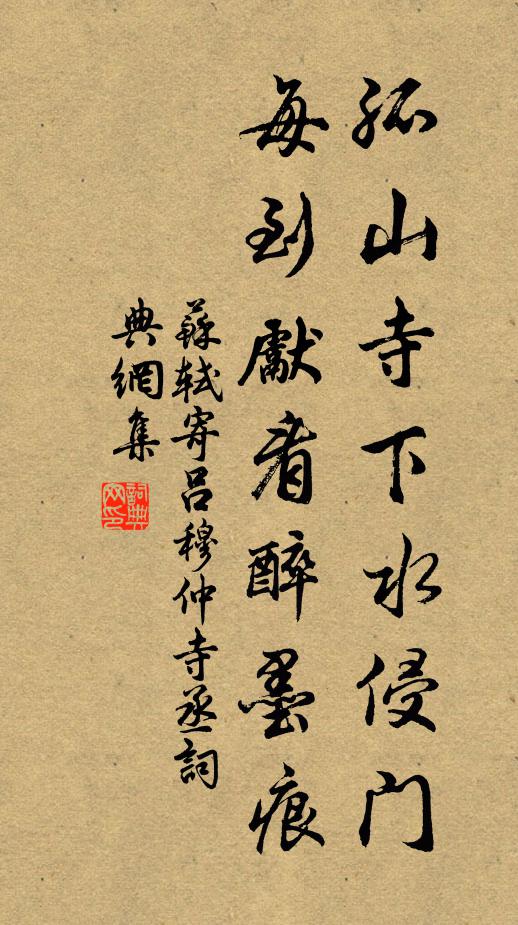 孤山寺下水侵門
每到獻看醉墨痕
蘇軾寄呂穆仲寺丞詞
典網集
詞典
网印